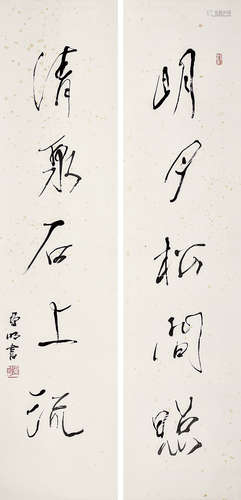 明月松间照
清泉石上流
亚明书